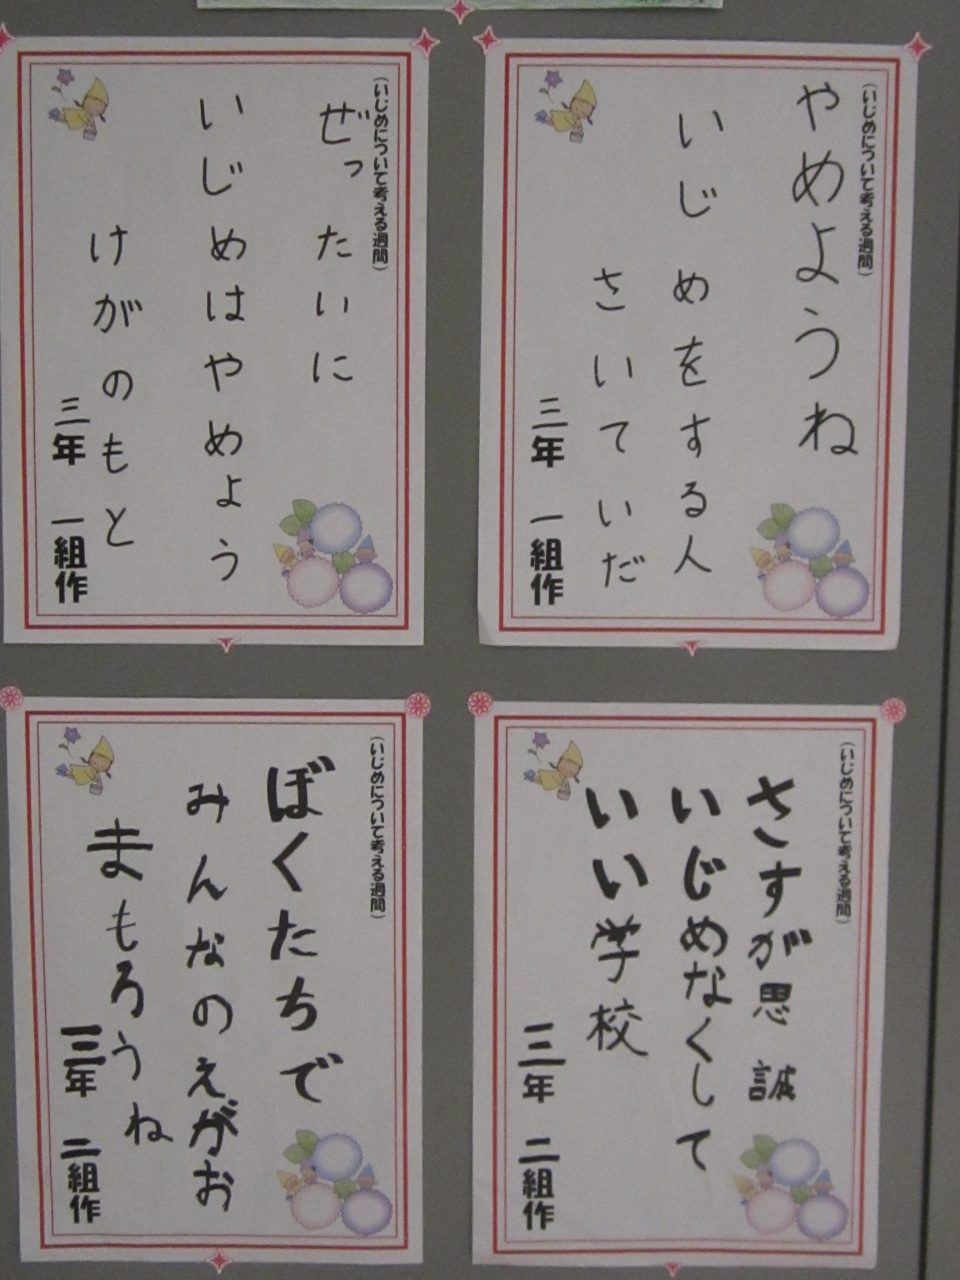 (いじめについて考える週間)
やめようね
いじめをする人
さいていだ
三年 一組作
(いじめについて考える週間)
ぜったいに
いじめはやめよう
けがのもと
三年 一組作
(いじめについて考える週間)
さすが思誠
いじめなくして
いい学校
三年 二組作
(いじめについて考える週間)
ぼくたちで
みんなのえがお
まもろうね
三年 二組作